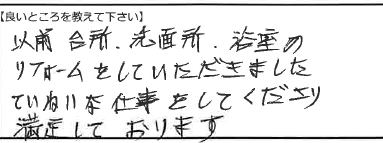 【良いところを教えて下さい】
以前 台所.洗面所.浴室の
リフォームをしていただきました
ていねいな仕事をしてくださり
満足しております